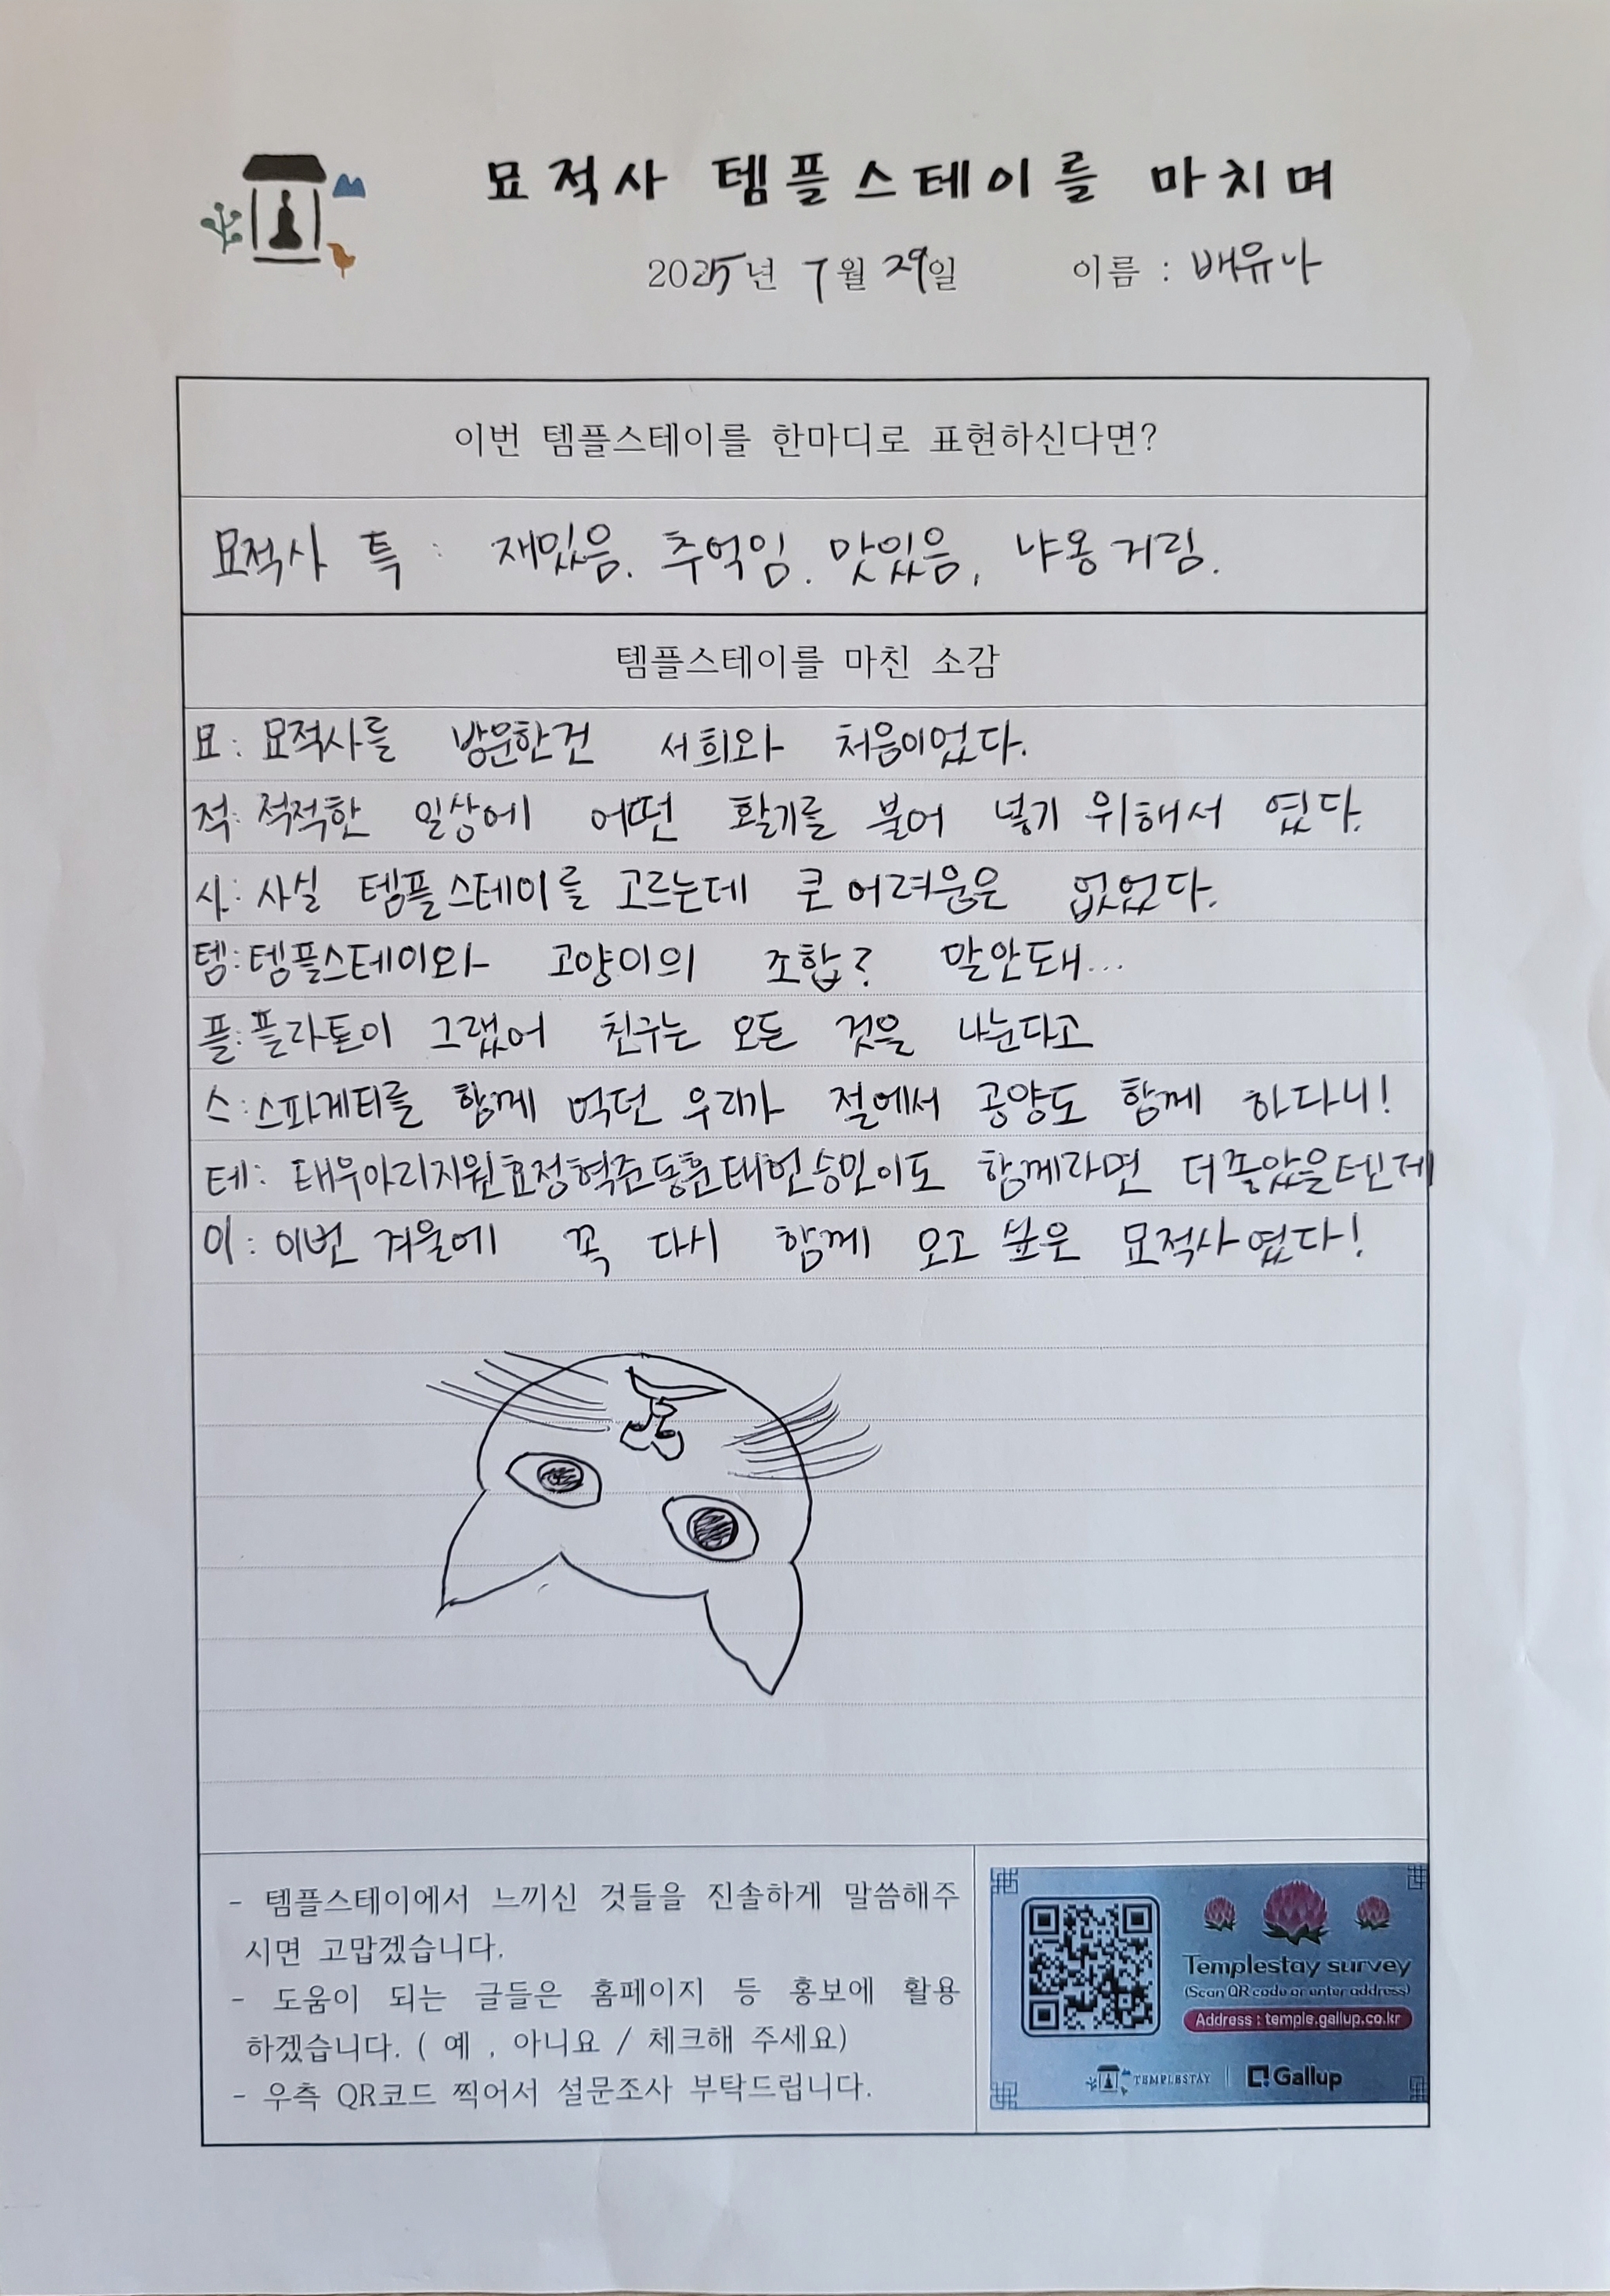 묘적사 템플스테이를 마치며
2025년 7월 29일 이름 : 배유나
이번 템플스테이를 한마디로 표현하신다면?
묘적사 특 : 재밌음. 추억임. 맛있음, 냐옹거림.
템플스테이를 마친 소감
묘 : 묘적사를 방문한건 서희와 처음이었다.
적: 적적한 일상에 어떤 활기를 불어 넣기 위해서 였다.
사: 사실 템플스테이를 고르는데 큰 어려움은 없었다.
템: 템플스테이와 고양이의 조합? 말안돼...
플: 플라톤이 그랬어 친구는 모든 것을 나눈다고
스: 스파게티를 함께 먹던 우리가 절에서 공양도 함께 하다니!
테: 태우아리지원효정혁준동훈태헌승민이도 함께라면 더좋았을텐데
이: 이번 겨울에 꼭 다시 함께 오고 싶은 묘적사였다!
- 템플스테이에서 느끼신 것들을 진솔하게 말씀해주
시면 고맙겠습니다.
- 도움이 되는 글들은 홈페이지 등 홍보에 활용
하겠습니다. ( 예 , 아니요 / 체크해 주세요)
- 우측 QR코드 찍어서 설문조사 부탁드립니다.
Templestay survey
(Scan QR code or enter address)
Address : temple.gallup.co.kr
TEMPLESTAY | Gallup